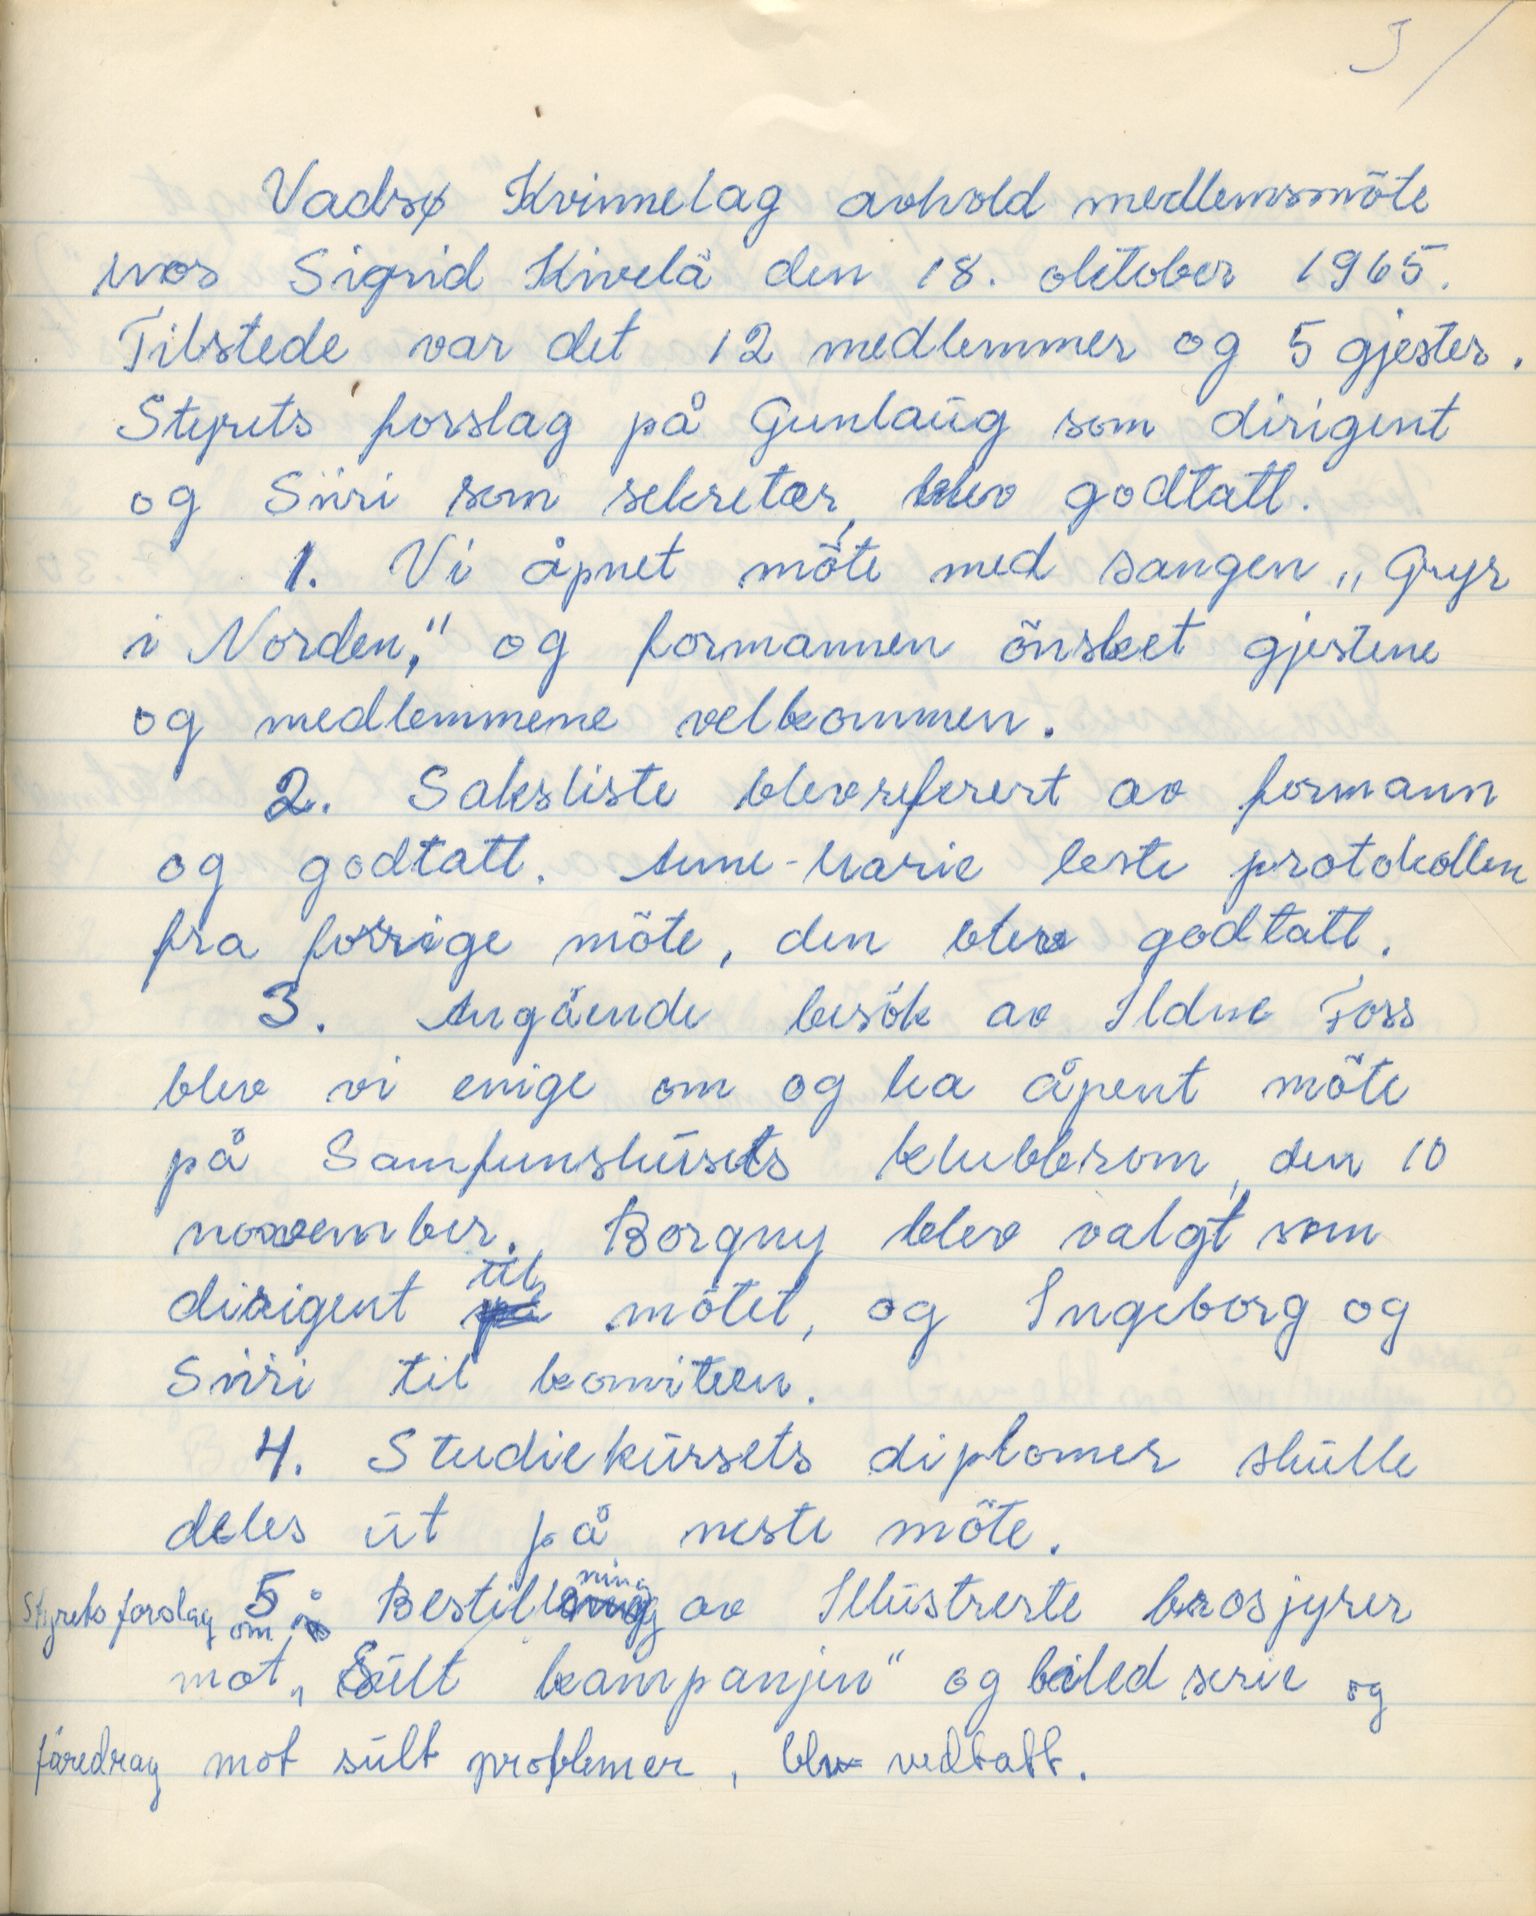 Vadsø Kvinnelag avhold medlemsmöte
hos Sigrid Kivelä den 18. oktober 1965.
Tilstede var det 12 medlemmer og 5 gjester.
Styrets forslag på Gunlaug som dirigent
og Siiri som sekretær, blev godtatt.
1. Vi åpnet möte med sangen „Gryr
i Norden," og formannen önsket gjestene
og medlemmene velkommen.
2. Saksliste blev referert av formann
og godtatt. Anne-Marie leste protokollen
fra forrige möte, den blev godtatt.
3. Angående besök av Ildne Foss
blev vi enige om og ha åpent möte
på Samfunshusets klubbrom, den 10
november. Borgny blev valgt som
dirigent til mötet, og Ingeborg og
Siiri til komiteen.
4. Studiekursets diplomer skulle
deles ut på neste möte.
Styrets forslag om 5. Bestillning av Illustrerte brosjyrer
mot „Sult kampanjen" og biled serie og
föredrag mot sult problemer, blev vedtatt.